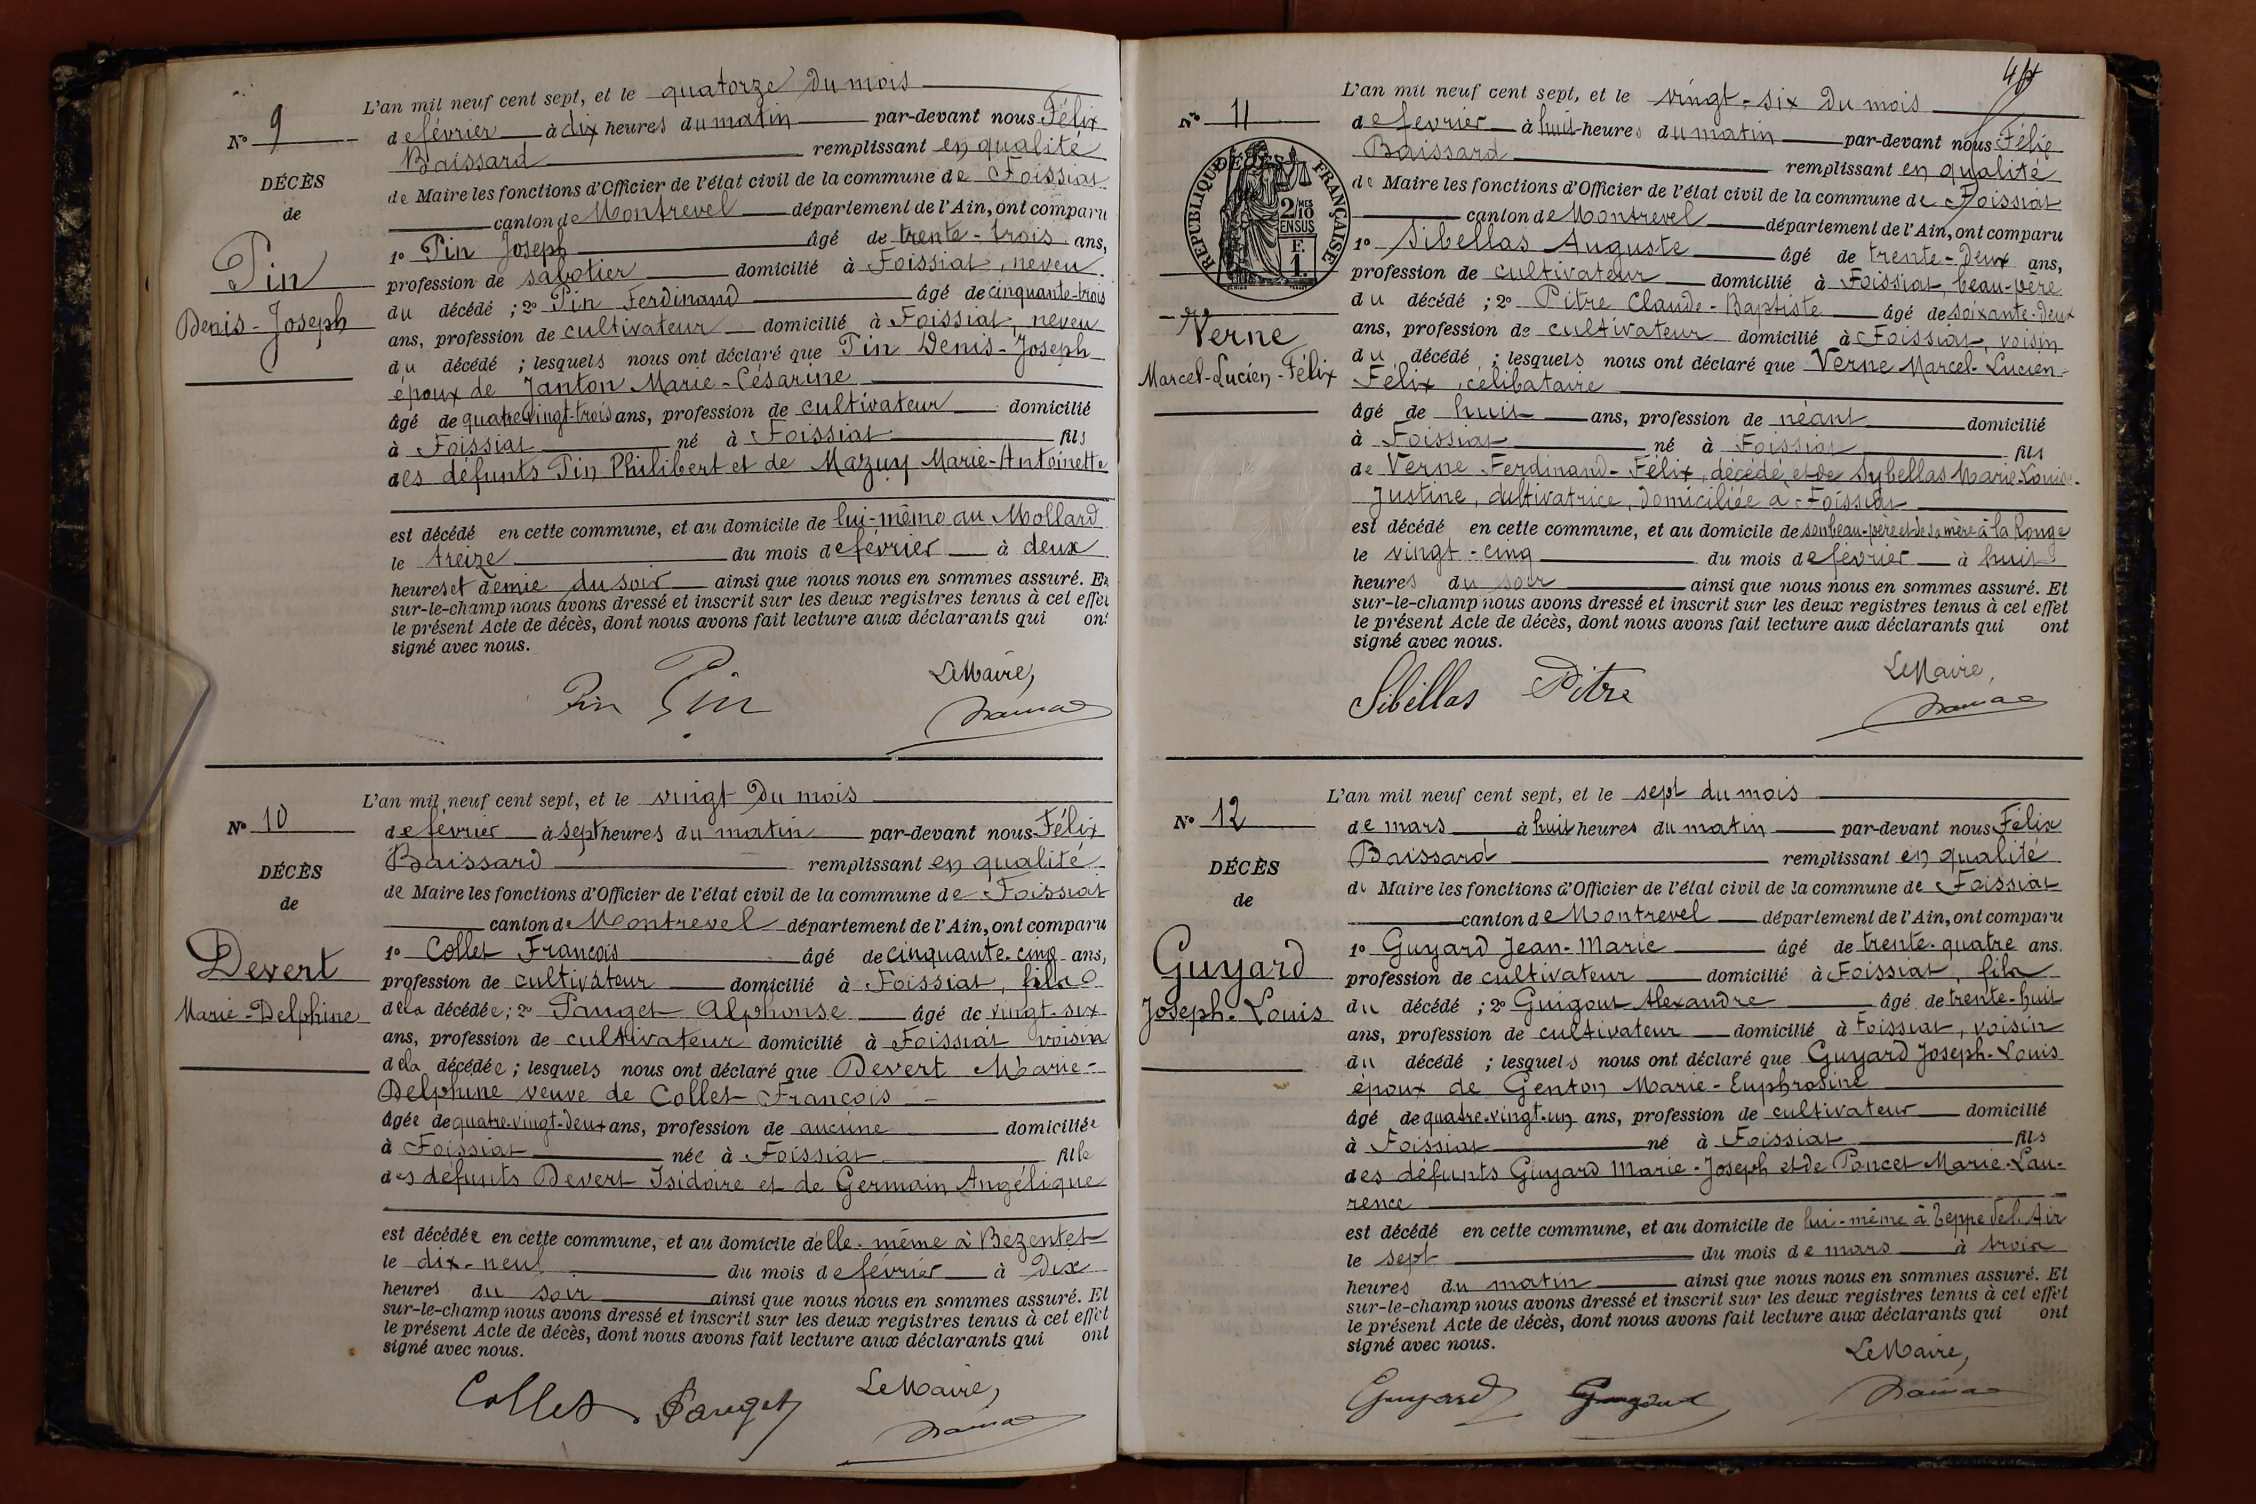 L'an mil neuf cent sept, et le quatorze du mois
N° 9
de février à dix heures du matin par-devant nous Félix
Baissard remplissant en qualité
DÉCÈS
de Maire les fonctions d'Officier de l'état civil de la commune de Foissiat
de
canton de Montrevel département de l'Ain, ont comparu
1° Pin Joseph âgé de trente-trois ans,
Pin
profession de sabotier domicilié à Foissiat, neveu
Denis-Joseph
du décédé ; 2° Pin Ferdinand âgé de cinquante-trois
ans, profession de cultivateur domicilié à Foissiat, neveu
du décédé ; lesquels nous ont déclaré que Pin Denis-Joseph
époux de Janton Marie-Césarine
âgé de quatre vingt-trois ans, profession de cultivateur domicilié
à Foissiat né à Foissiat fils
des défunts Pin Philibert et de Mazuy Marie-Antoinette
est décédé en cette commune, et au domicile de lui-même au Mollard
le treize du mois de février à deux
heures et demie du soir ainsi que nous nous en sommes assuré. Et
sur-le-champ nous avons dressé et inscrit sur les deux registres tenus à cet effet
le présent Acte de décès, dont nous avons fait lecture aux déclarants qui ont
signé avec nous.
Le Maire,
Pin Pin
L'an mil neuf cent sept, et le vingt du mois
N° 10
de février à sept heures du matin par-devant nous Félix
Baissard remplissant en qualité
DÉCÈS
de Maire les fonctions d'Officier de l'état civil de la commune de Foissiat
de
canton de Montrevel département de l'Ain, ont comparu
1° Collet François âgé de cinquante-cinq ans,
Devert
profession de cultivateur domicilié à Foissiat, fils
Marie-Delphine
de la décédée ; 2° Pauget Alphonse âgé de vingt-six
ans, profession de cultivateur domicilié à Foissiat voisin
de la décédée ; lesquels nous ont déclaré que Devert Marie-
Delphine veuve de Collet François
âgée de quatre-vingt-deux ans, profession de aucune domiciliée
à Foissiat née à Foissiat fille
des défunts Devert Isidoire et de Germain Angélique
est décédée en cette commune, et au domicile d'elle-même à Bezentet
le dix-neuf du mois de février à dix
heures du soir ainsi que nous nous en sommes assuré. Et
sur-le-champ nous avons dressé et inscrit sur les deux registres tenus à cet effet
le présent Acte de décès, dont nous avons fait lecture aux déclarants qui ont
signé avec nous.
Le Maire,
Collet Pauget
L'an mil neuf cent sept, et le vingt-six du mois
N° 11
de février à huit heures du matin par-devant nous Félix
Baissard remplissant en qualité
de Maire les fonctions d'Officier de l'état civil de la commune de Foissiat
canton de Montrevel département de l'Ain, ont comparu
RÉPUBLIQUE FRANÇAISE
2/10 MES
EN SUS
F.
1.
1° Sibellas Auguste âgé de trente-deux ans,
profession de cultivateur domicilié à Foissiat, beau-père
du décédé ; 2° Pitre Claude-Baptiste âgé de soixante-deux
Verne
ans, profession de cultivateur domicilié à Foissiat, voisin
Marcel-Lucien-Félix
du décédé ; lesquels nous ont déclaré que Verne Marcel-Lucien-
Félix, célibataire
âgé de huit ans, profession de néant domicilié
à Foissiat né à Foissiat fils
de Verne Ferdinand-Félix, décédé et de Sybellas Marie-Louise-
Justine, cultivatrice, domiciliée à Foissiat
est décédé en cette commune, et au domicile de son beau-père et de sa mère à la Ronge
le vingt-cinq du mois de février à huit
heures du soir ainsi que nous nous en sommes assuré. Et
sur-le-champ nous avons dressé et inscrit sur les deux registres tenus à cet effet
le présent Acte de décès, dont nous avons fait lecture aux déclarants qui ont
signé avec nous.
Le Maire,
Sibellas Pitre
L'an mil neuf cent sept, et le sept du mois
N° 12
de mars à huit heures du matin par-devant nous Félix
Baissard remplissant en qualité
DÉCÈS
de Maire les fonctions d'Officier de l'état civil de la commune de Foissiat
de
canton de Montrevel département de l'Ain, ont comparu
1° Guyard Jean-Marie âgé de trente-quatre ans.
Guyard
profession de cultivateur domicilié à Foissiat, fils
Joseph-Louis
du décédé ; 2° Guigout Alexandre âgé de trente-huit
ans, profession de cultivateur domicilié à Foissiat, voisin
du décédé ; lesquels nous ont déclaré que Guyard Joseph-Louis
époux de Genton Marie-Euphrosine
âgé de quatre-vingt-un ans, profession de cultivateur domicilié
à Foissiat né à Foissiat fils
des défunts Guyard Marie-Joseph et de Poncet Marie-Lau-
rence
est décédé en cette commune, et au domicile de lui-même à Teppe del Air
le sept du mois de mars à trois
heures du matin ainsi que nous nous en sommes assuré. Et
sur-le-champ nous avons dressé et inscrit sur les deux registres tenus à cet effet
le présent Acte de décès, dont nous avons fait lecture aux déclarants qui ont
signé avec nous.
Le Maire,
Guyard